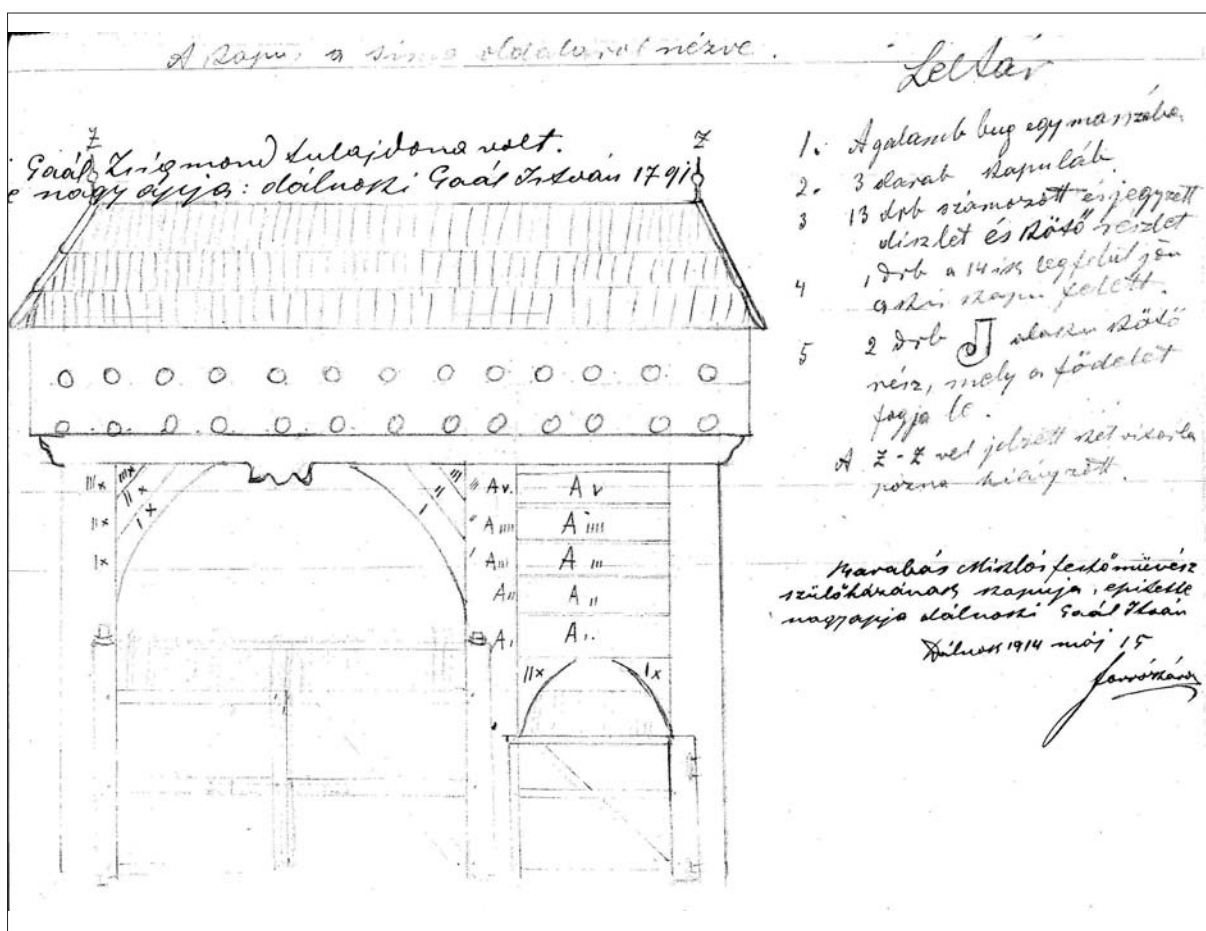 A kapu, a sima oldaláról nézve.
Z Z
Gaál Zsigmond tulajdona volt.
nagyapja: dálnoki Gaál István 1791
IIIx IIIx III III A V. A V
IIx IIx II II A IIII A IIII
Ix Ix I I A III A III
A II A II
A I. A I.
IIx Ix
Leltár
1. A galamb bug egymaszába
2. 3 darab kapuláb
3 13 drb számozott és jegyzett
diszlet és kötő részlet
4 1 drb a 14ik legfelül jön
a kis kapu felett.
5 2 drb J alaku kötő
rész, mely a födelet
fogja le.
A Z-Z vel jelzett két
pozna hiányzott.
Barabás Miklós festőművész
szülőházának kapuja, épitette
nagyapja dálnoki Gaál István
Dálnok 1914 máj 15